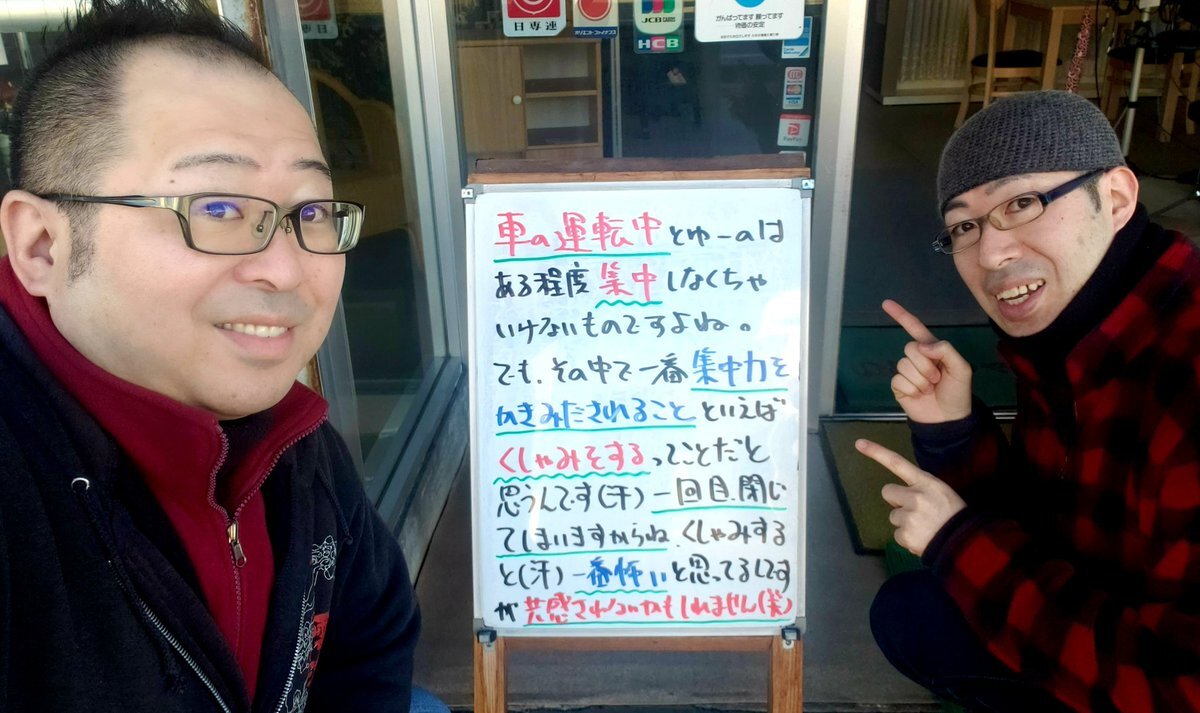 日専連
オリエントファイナンス
JCB CARDS
HCB
がんばってます 願ってます
物価の安定
PayPay
車の運転中とゆーのは
ある程度集中しなくちゃ
いけないものですよね。
でも、その中で一番集中力を
かきみだされること といえば
くしゃみをするってことだと
思うんです(汗)一回目、閉じ
てしまいますからね、くしゃみする
と(汗)一番怖いと思ってるしです
が共感されないかもしれません(笑)